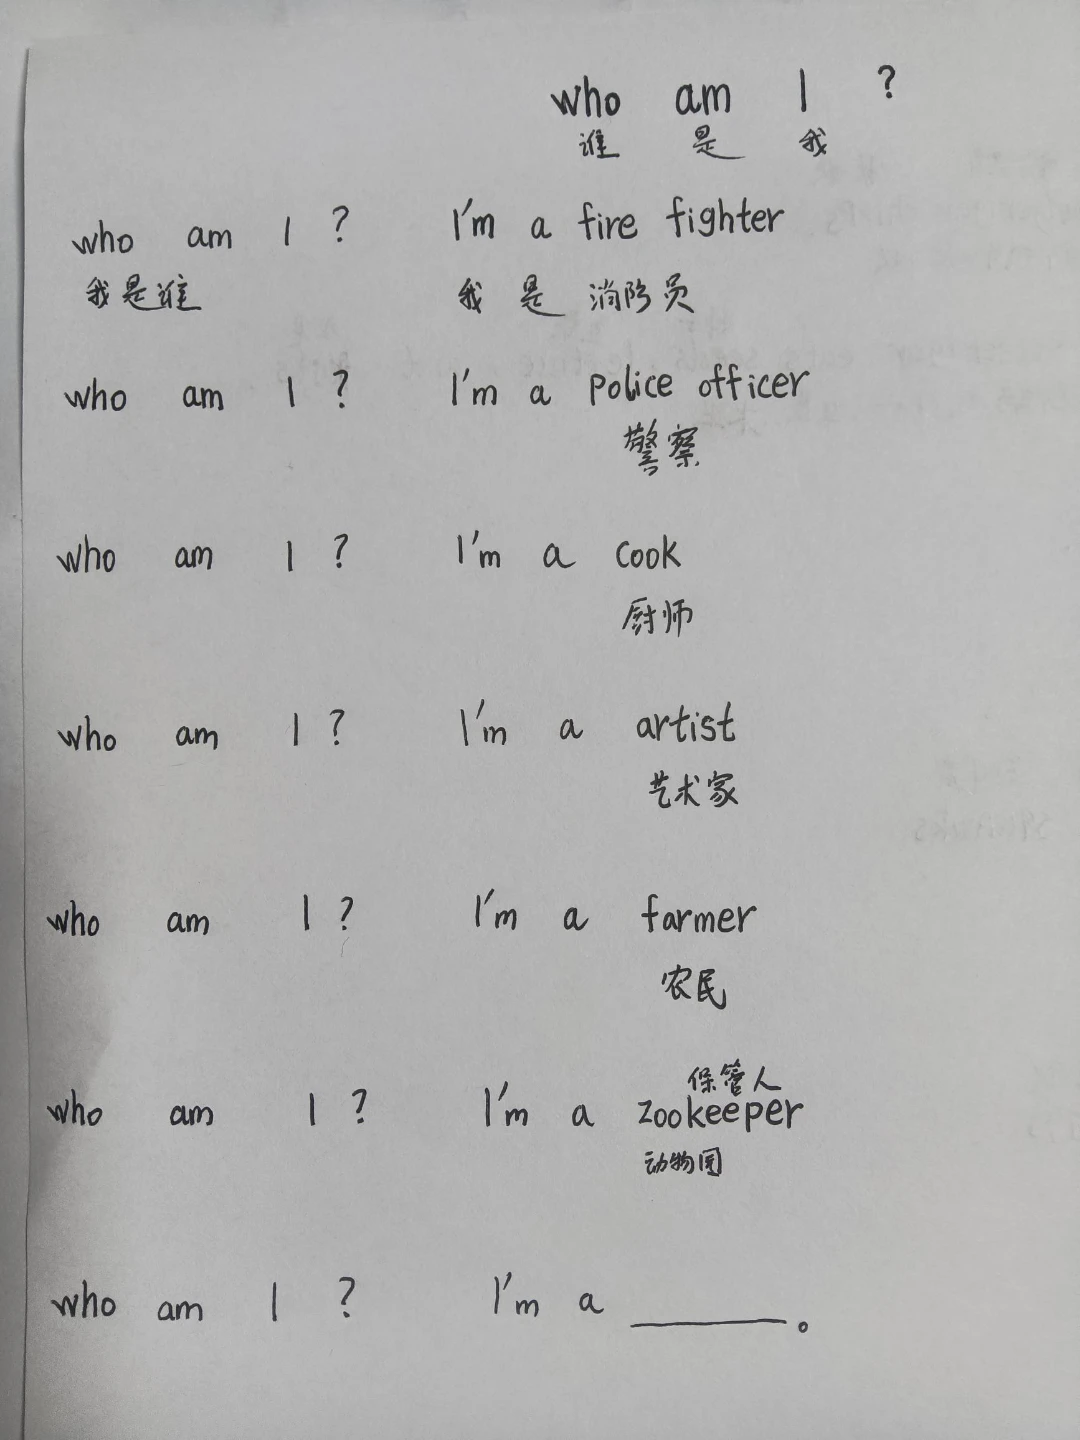 who am I ?
谁 是 我
who am I ? I'm a fire fighter
我是谁 我 是 消防员
who am I ? I'm a police officer
警察
who am I ? I'm a cook
厨师
who am I ? I'm a artist
艺术家
who am I ? I'm a farmer
农民
保管人
who am I ? I'm a zookeeper
动物园
who am I ? I'm a ______。